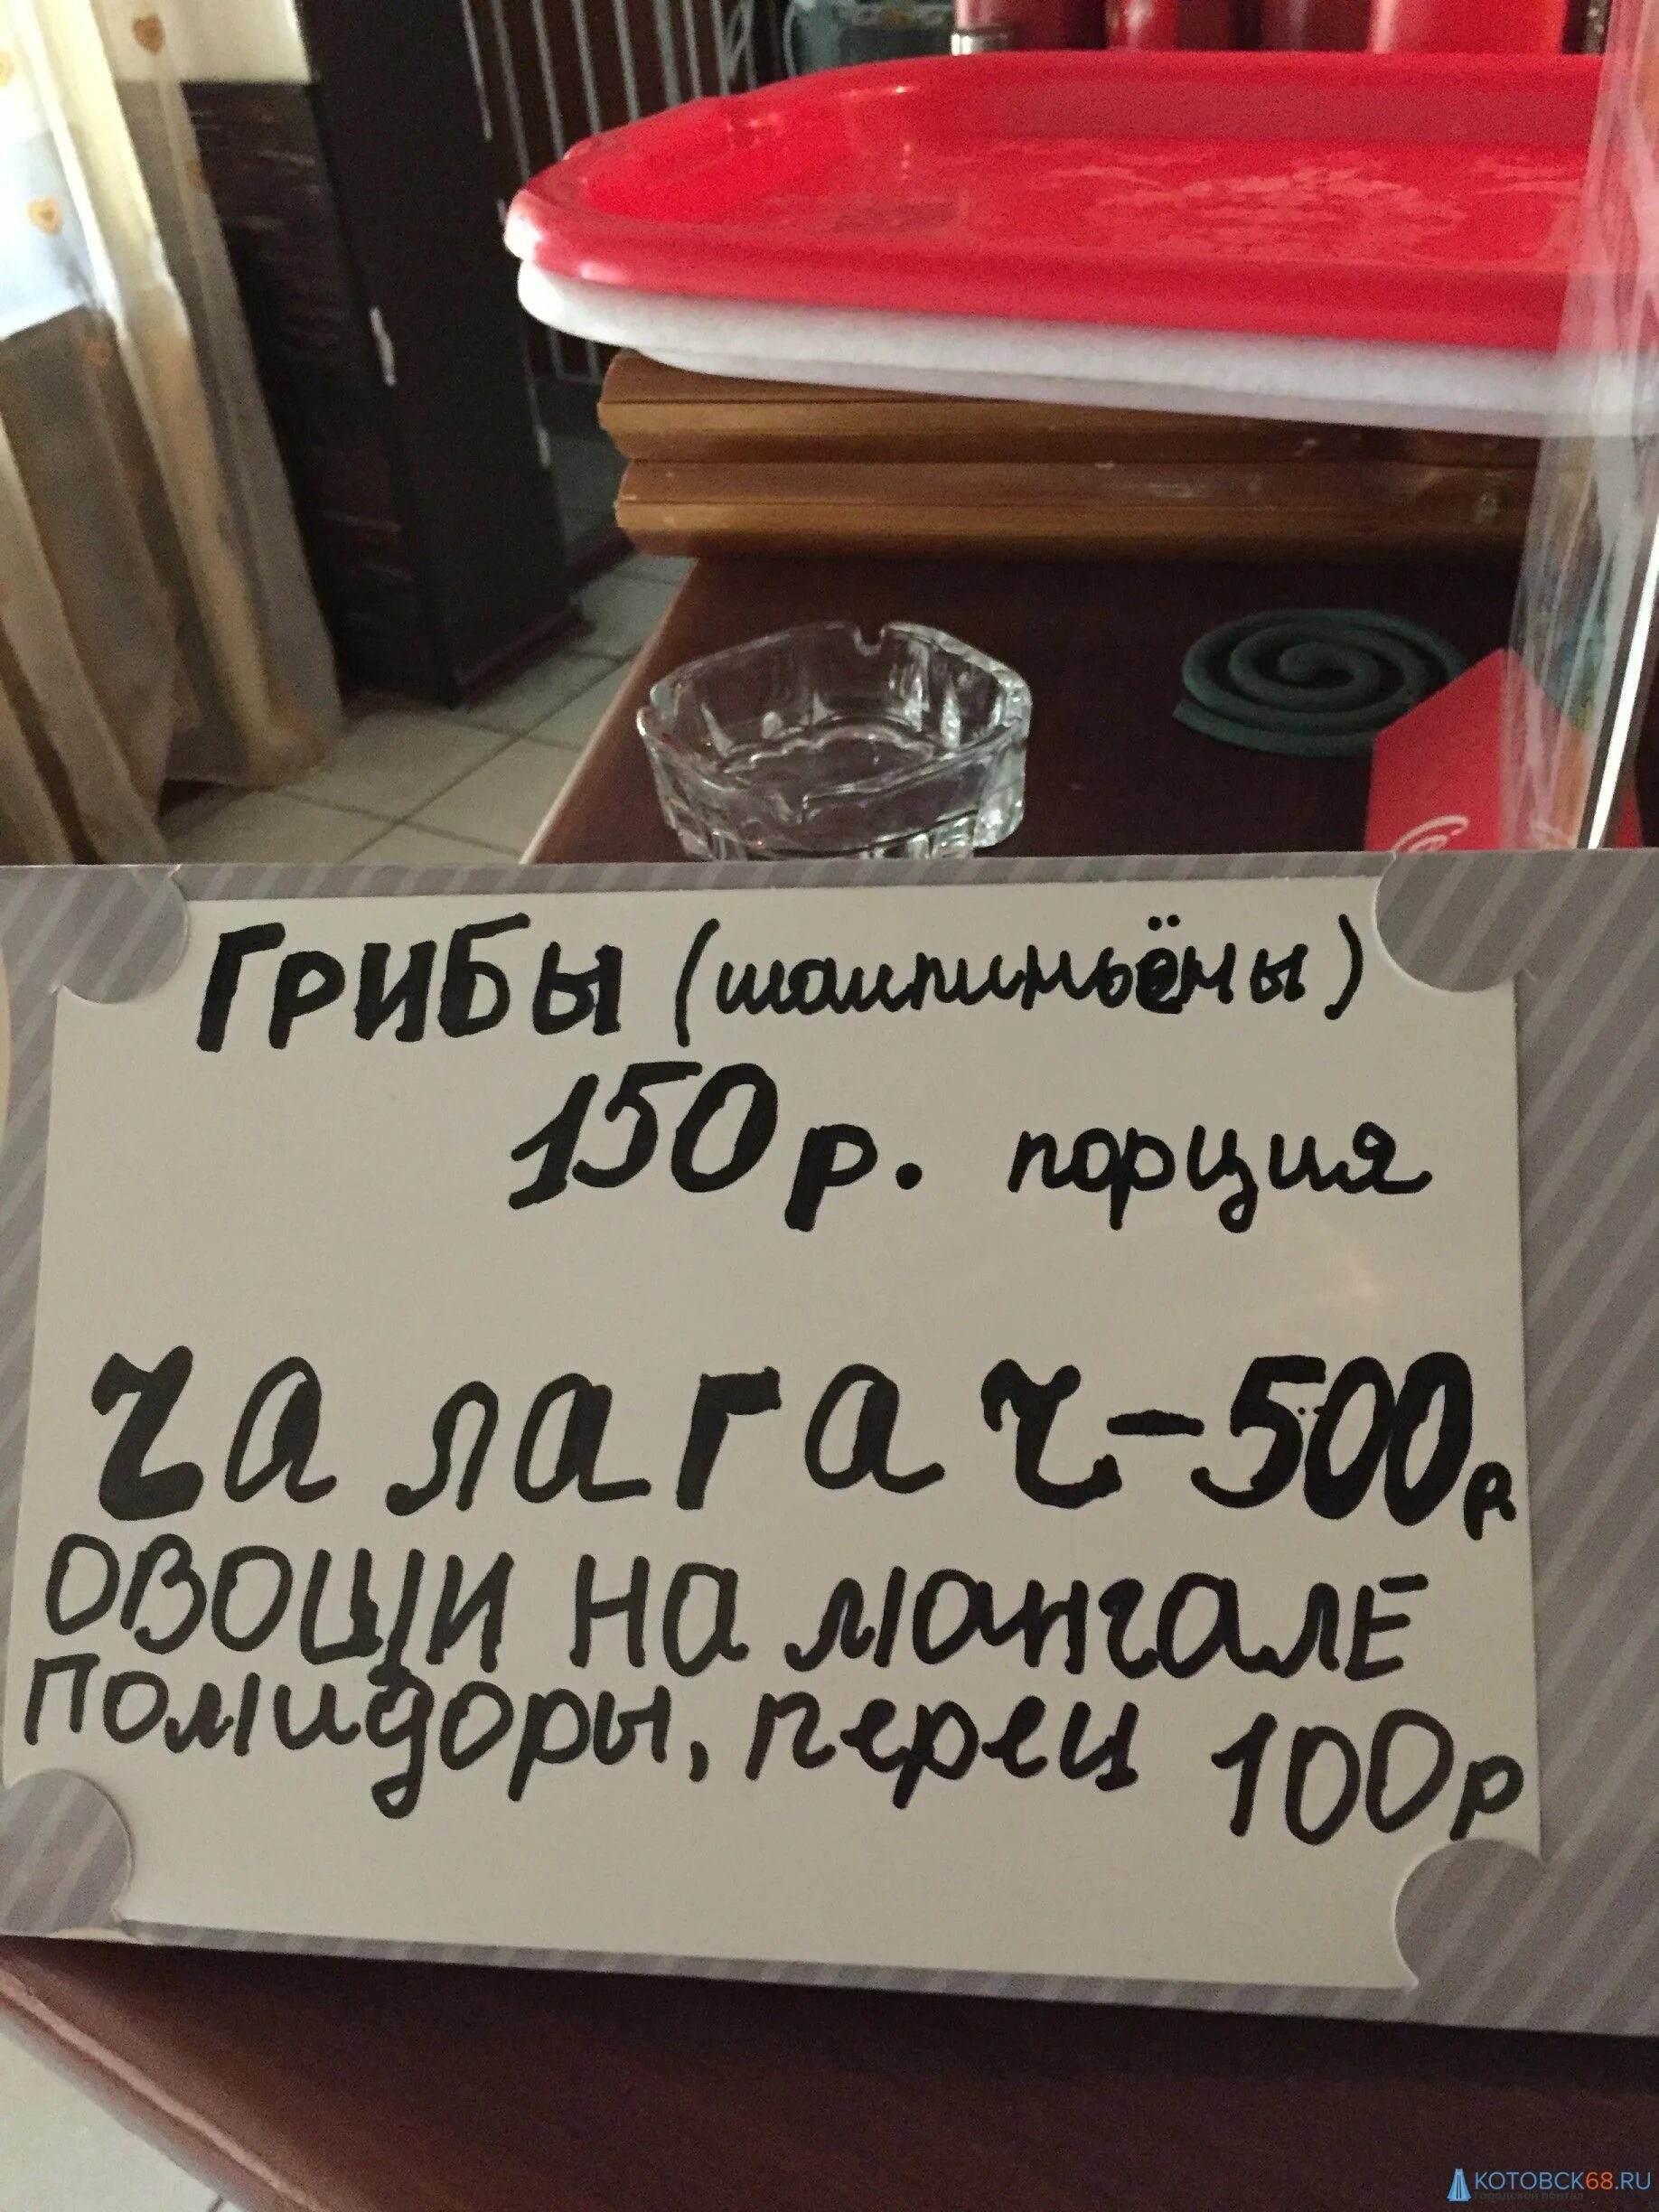 ГРИБЫ (шампиньёны)
150р. порция
чалагач-500р
ОВОЩИ НА мангалЕ
помидоры, перец 100р
КОТОВСК68.RU
городской портал